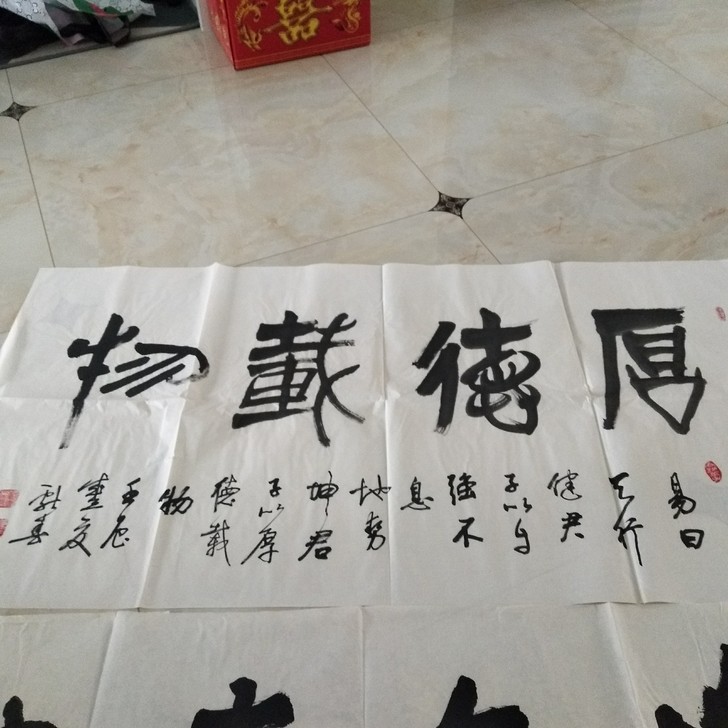 厚德載物
易曰
天行
健君
子以自
強不
息
地勢
坤君
子以厚
德載
物
壬辰